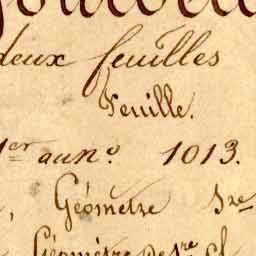 deux feuilles
Feuille.
1er au no. 1013.
Géomètre
Géomètre de 1re cl